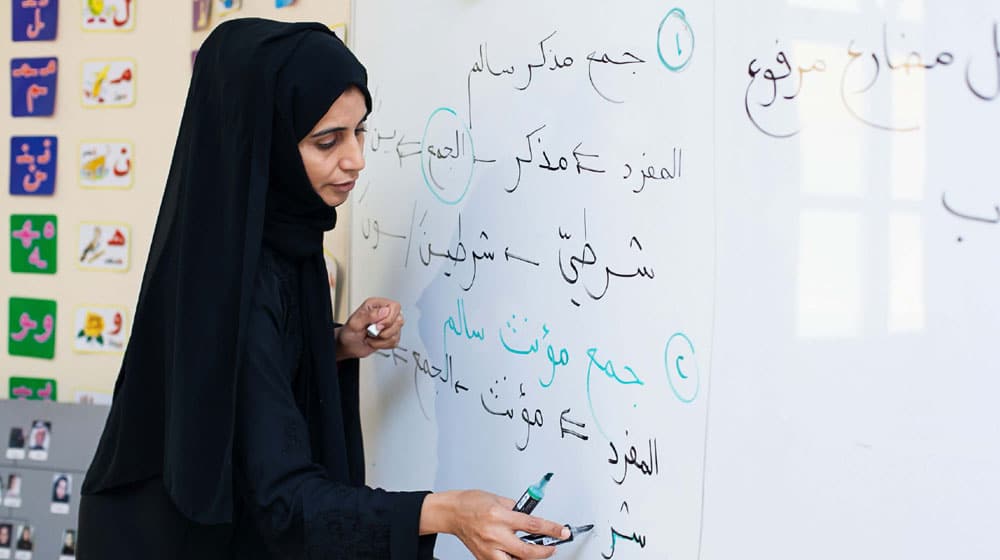 ١ جمع مذكر سالم
المفرد ⇐ مذكر ← الجمع ⇐ ين
شرطيّ ← شرطيينَ / ـونَ
٢ جمع مؤنث سالم
المفرد ⇐ مؤنث ← الجمع ⇐
شر
مضارع مرفوع
م
ن
هـ
و